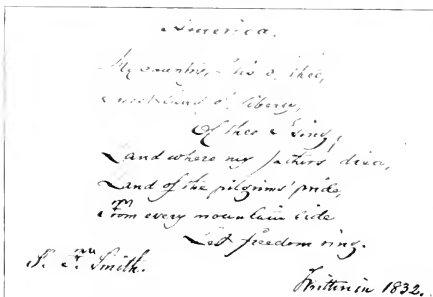 America.
My country, 'tis of thee,
Sweet land of liberty,
Of thee I sing,
Land where my fathers died,
Land of the pilgrims' pride,
From every mountain side
Let freedom ring.
S. F. Smith.
Written in 1832.